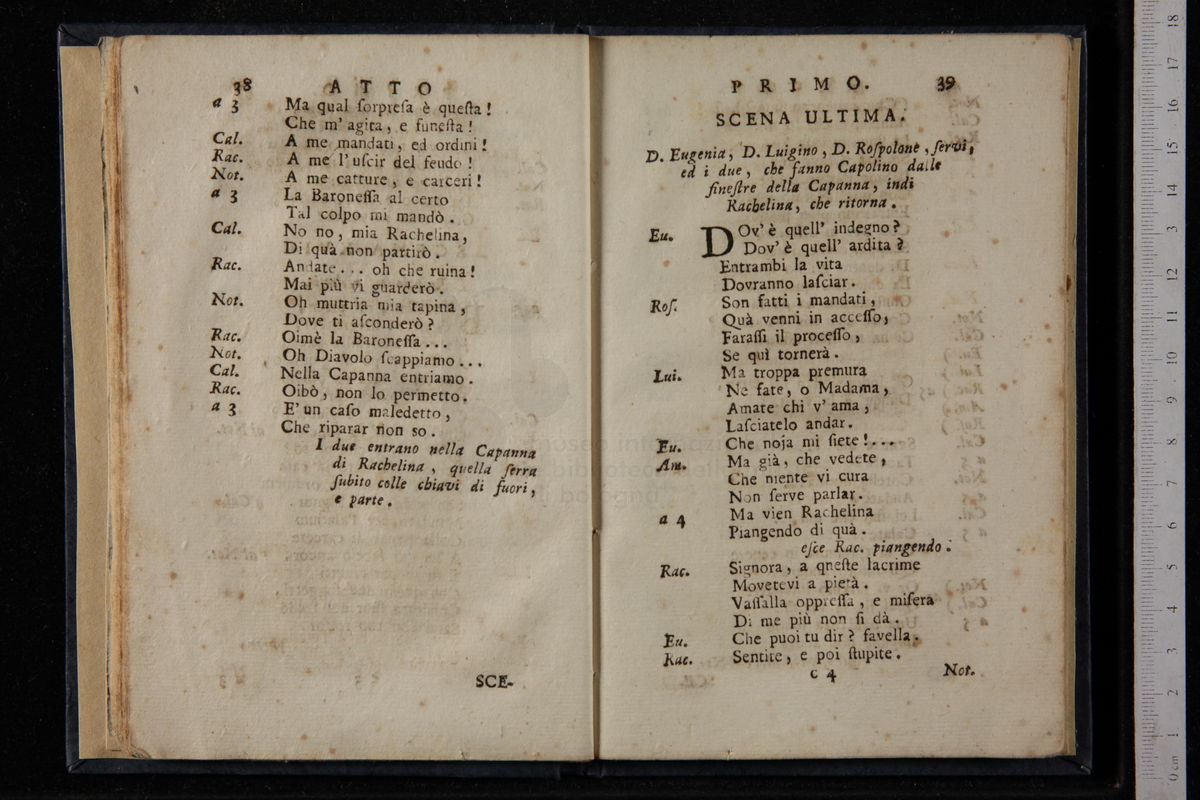 38 ATTO
a 3 Ma qual ſorpreſa è queſta!
Che m' agita, e funeſta!
Cal. A me mandati, ed ordini!
Rac. A me l' uſcir del feudo!
Not. A me catture, e carceri!
a 3 La Baroneſſa al certo
Tal colpo mi mandò.
Cal. No no, mia Rachelina,
Di quà non partirò.
Rac. Andate... oh che ruina!
Mai più vi guarderò.
Not. Oh muttria mia tapina,
Dove ti aſconderò?
Rac. Oimè la Baroneſſa...
Not. Oh Diavolo ſcappiamo...
Cal. Nella Capanna entriamo.
Rac. Oibò, non lo permetto.
a 3 E' un caſo maledetto,
Che riparar non so.
I due entrano nella Capanna
di Rachelina, quella ſerra
ſubito colle chiavi di fuori,
e parte.
SCE-
PRIMO. 39
SCENA ULTIMA.
D. Eugenia, D. Luigino, D. Roſpolone, ſervi,
ed i due, che fanno Capolino dalle
fineſtre della Capanna, indi
Rachelina, che ritorna.
Eu. DOv' è quell' indegno?
Dov' è quell' ardita?
Entrambi la vita
Dovranno laſciar.
Roſ. Son fatti i mandati,
Quà venni in acceſſo,
Faraſſi il proceſſo,
Se quì tornerà.
Lui. Ma troppa premura
Ne fate, o Madama,
Amate chi v' ama,
Laſciatelo andar.
Eu. Che noja mi ſiete!...
Am. Ma già, che vedete,
Che niente vi cura
Non ſerve parlar.
a 4 Ma vien Rachelina
Piangendo di quà.
eſce Rac. piangendo.
Rac. Signora, a qneſte lacrime
Movetevi a pietà.
Vaſſalla oppreſſa, e miſera
Di me più non ſi dà.
Eu. Che puoi tu dir? favella.
Rac. Sentite, e poi ſtupite.
C 4 Not.